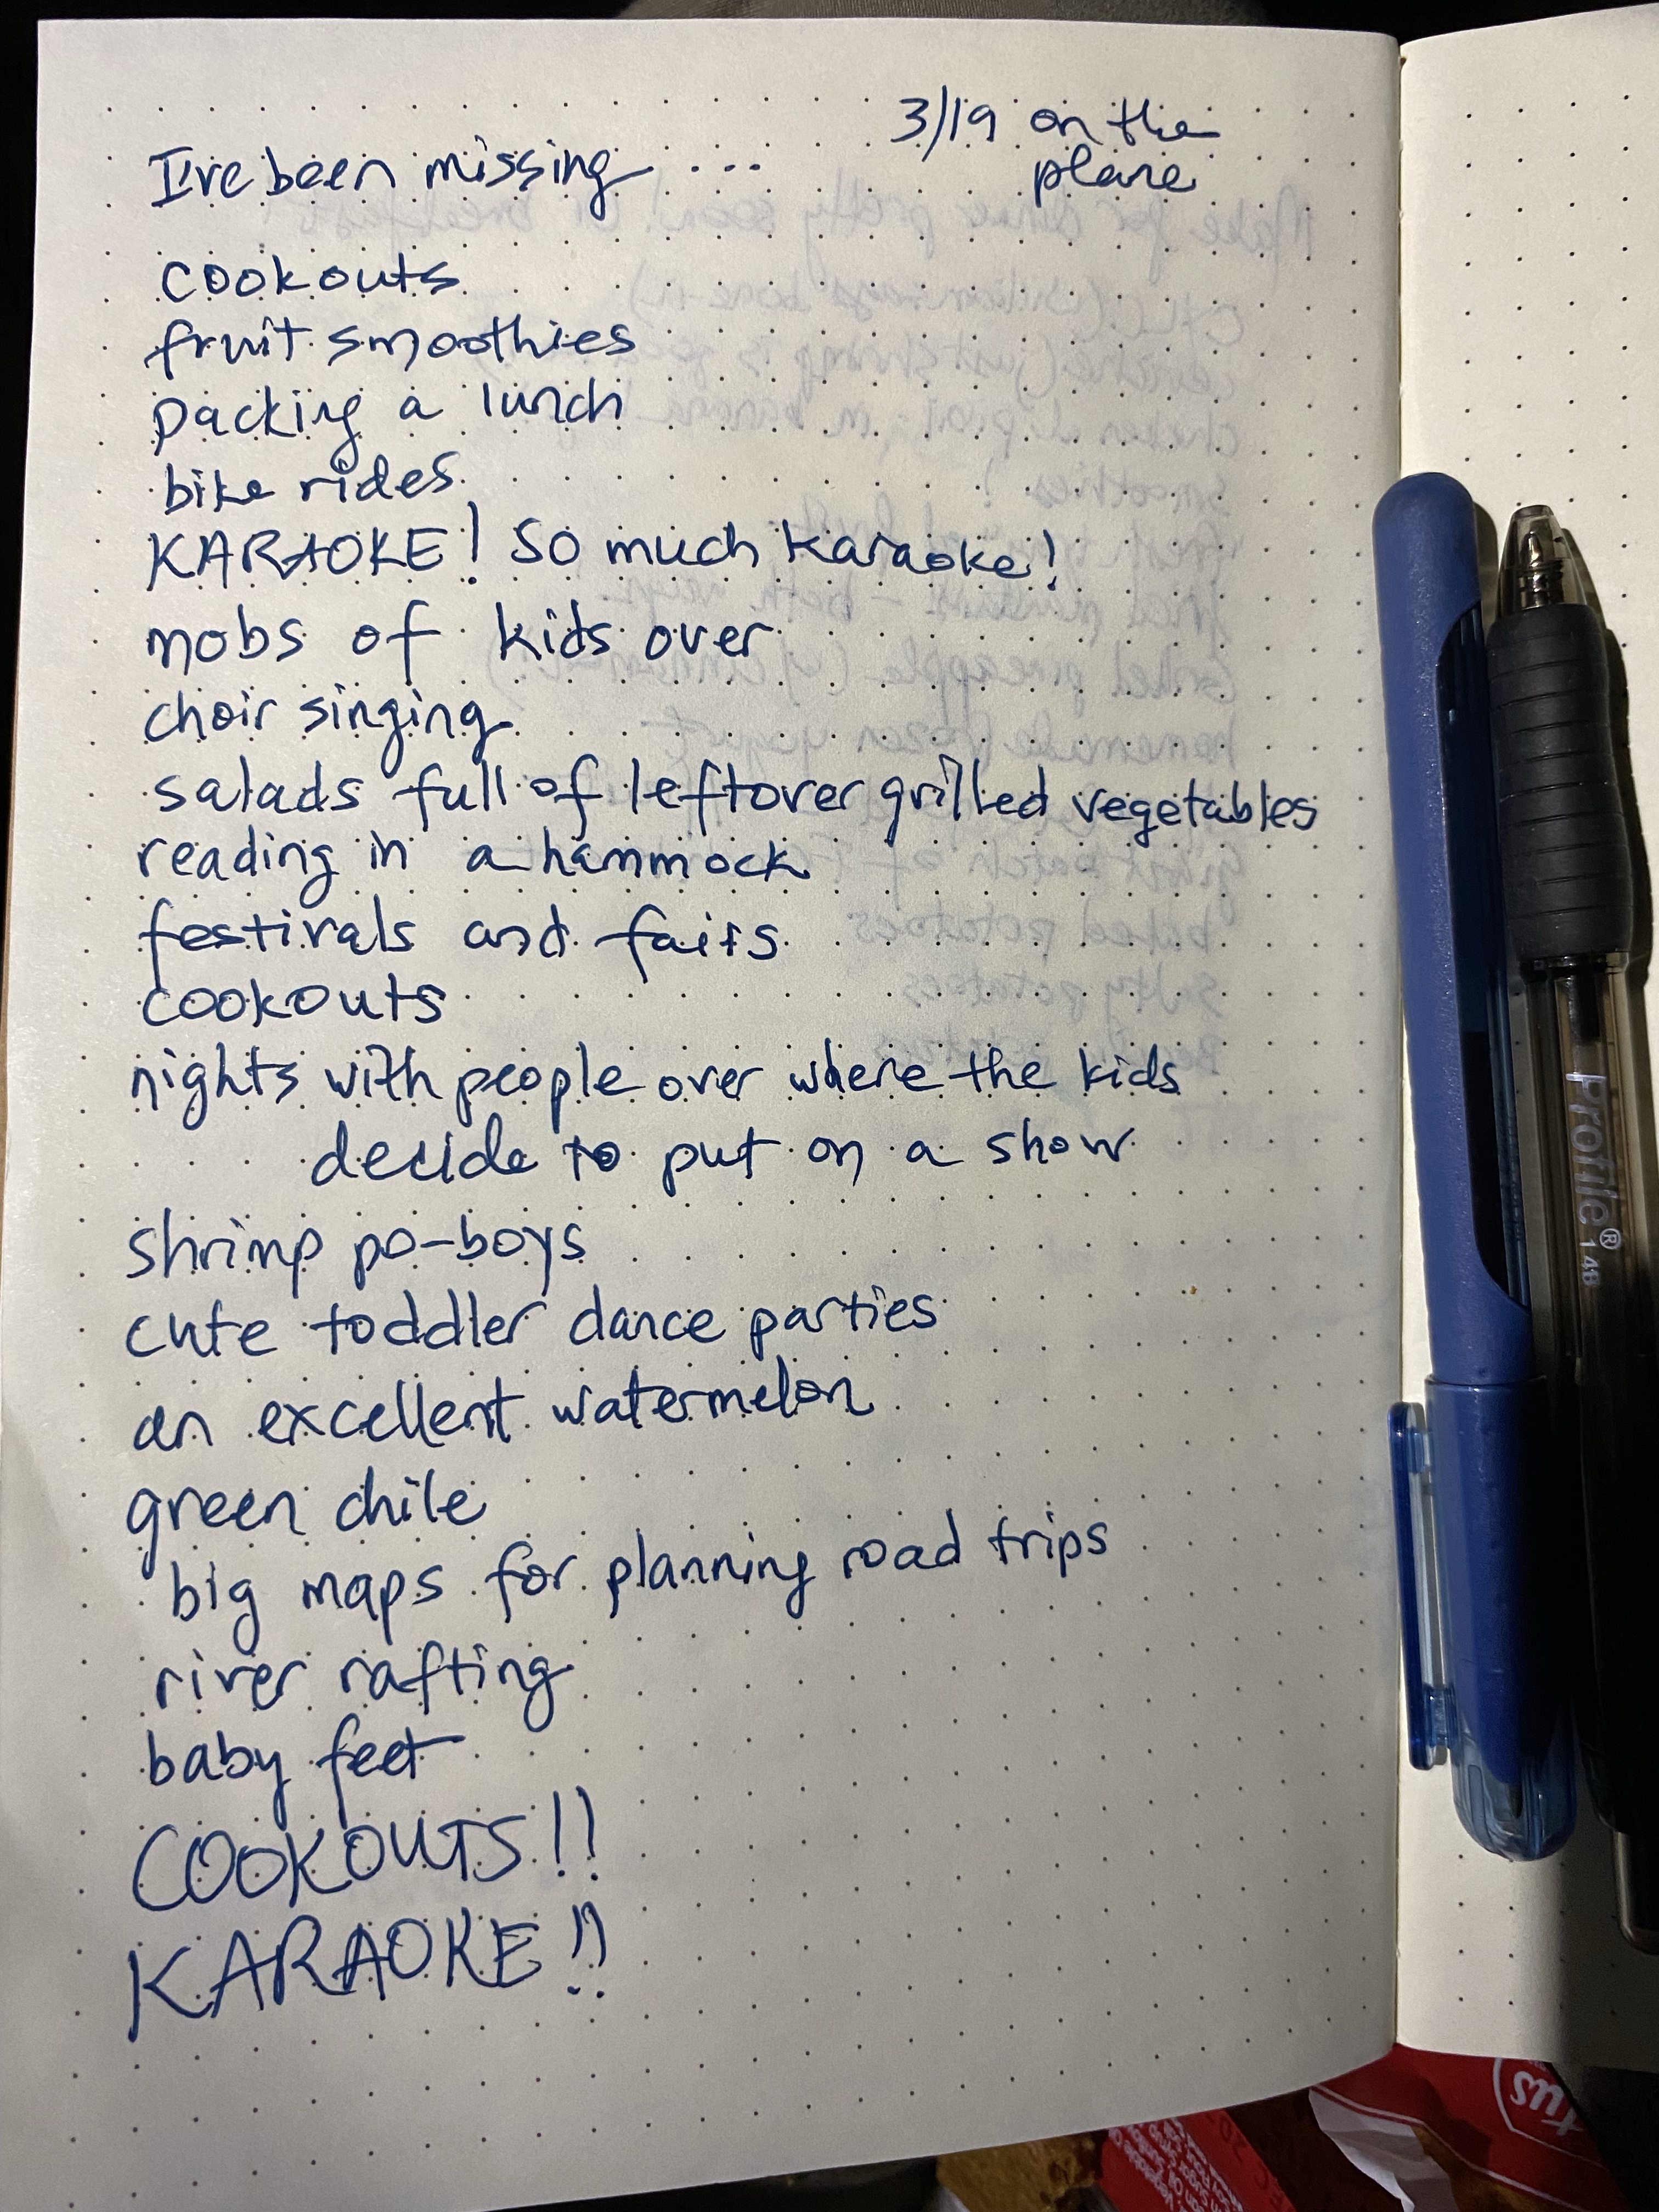 3/19 on the
plane
I've been missing ....
cookouts
fruit smoothies
packing a lunch
bike rides
KARAOKE! So much karaoke!
mobs of kids over
choir singing
salads full of leftover grilled vegetables
reading in a hammock
festivals and fairs
cookouts
nights with people over where the kids
decide to put on a show
shrimp po-boys
cute toddler dance parties
an excellent watermelon
green chile
big maps for planning road trips
river rafting
baby feet
COOKOUTS!!
KARAOKE!!
Profile® 1.4B